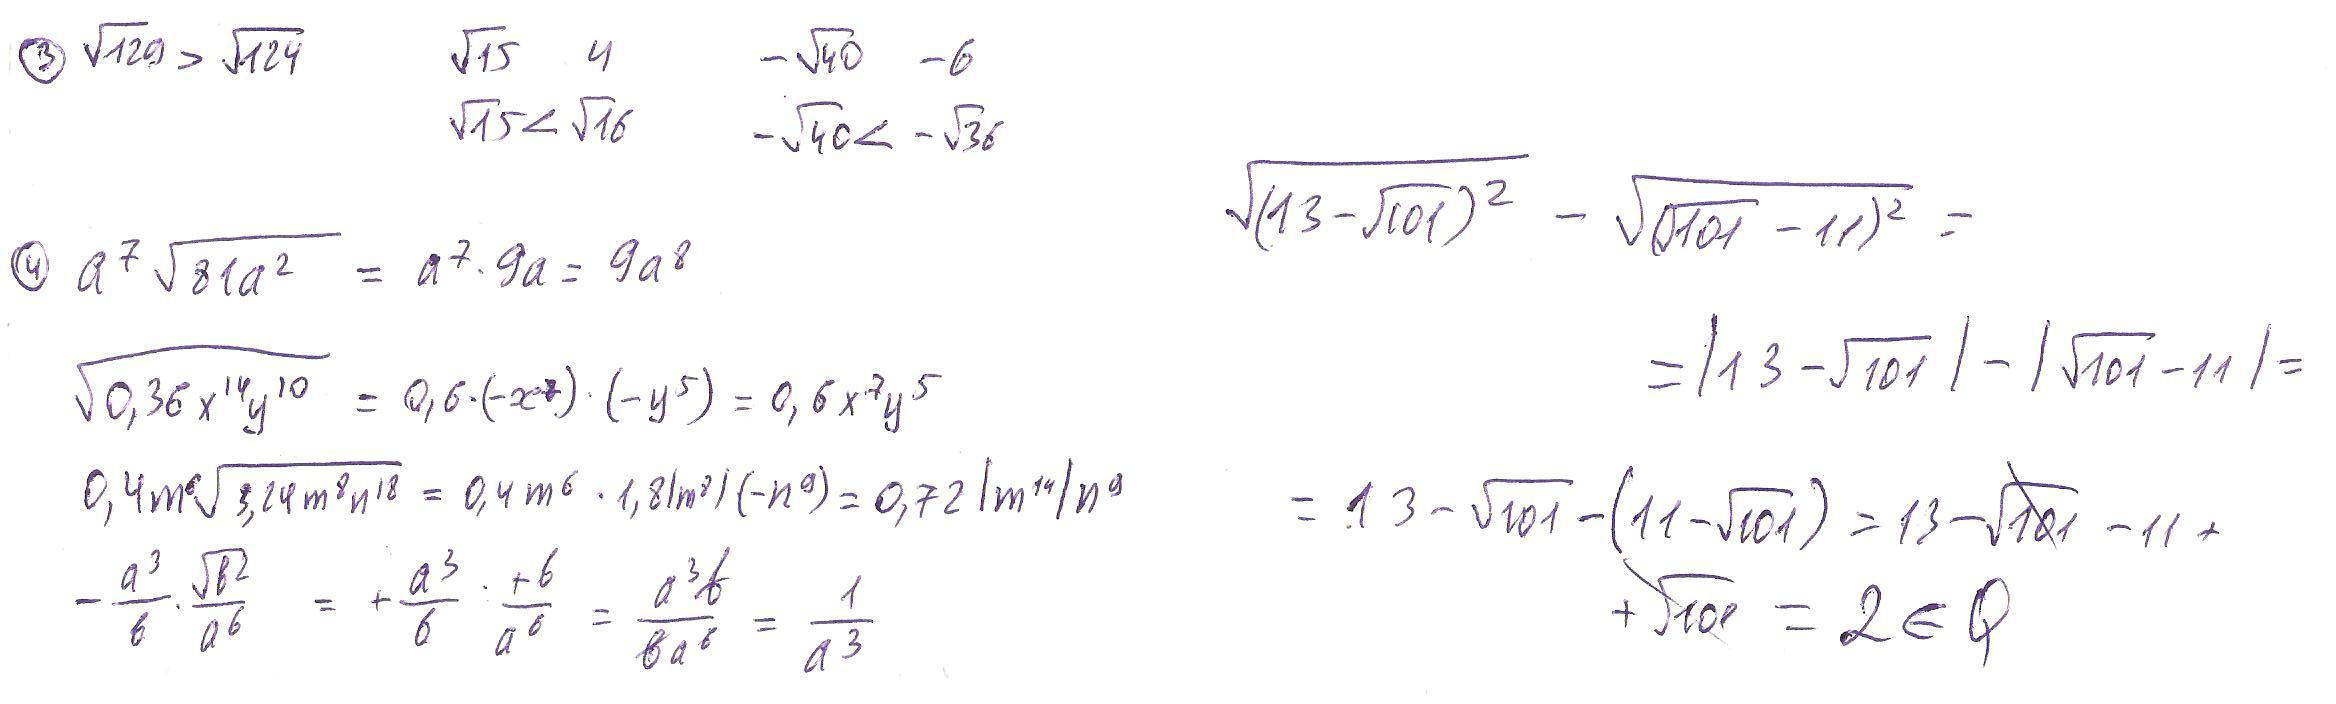 ③ √129 > √124   √15   4   -√40   -6
√15 < √16   -√40 < -√36
④ a⁷√(81a²) = a⁷·9a = 9a⁸
√(0,36x¹⁴y¹⁰) = 0,6·(-x⁷)·(-y⁵) = 0,6x⁷y⁵
0,4m⁶√(3,24m⁸n¹⁸) = 0,4m⁶ · 1,8|m⁸|(-n⁹) = 0,72|m¹⁴|n⁹
-a³/b · √b²/a⁶ = +a³/b · +b/a⁶ = a³b/ba⁶ = 1/a³
√((13-√101)²) - √((√101-11)²) =
= |13-√101| - |√101-11| =
= 13-√101-(11-√101) = 13-√101-11+
+√101 = 2 ∈ Q